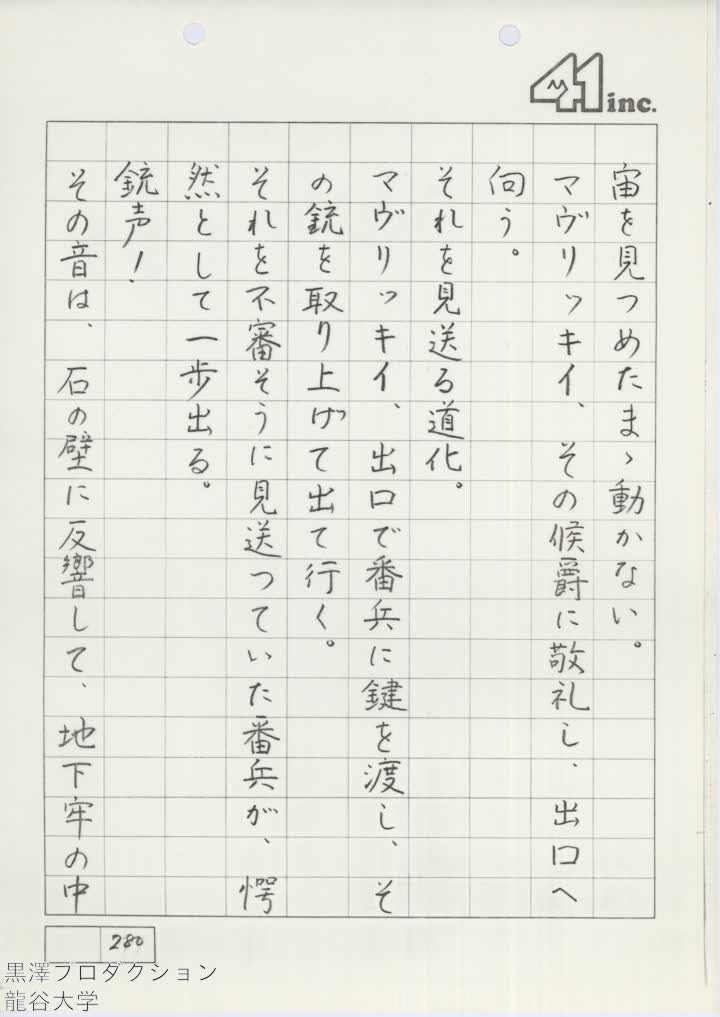 41 inc.
宙を見つめたまゝ動かない。
マヴリッキイ、その候爵に敬礼し、出口へ
向う。
それを見送る道化。
マヴリッキイ、出口で番兵に鍵を渡し、そ
の銃を取り上げて出て行く。
それを不審そうに見送つていた番兵が、愕
然として一歩出る。
銃声!
その音は、石の壁に反響して、地下牢の中
280
黒澤プロダクション
龍谷大学